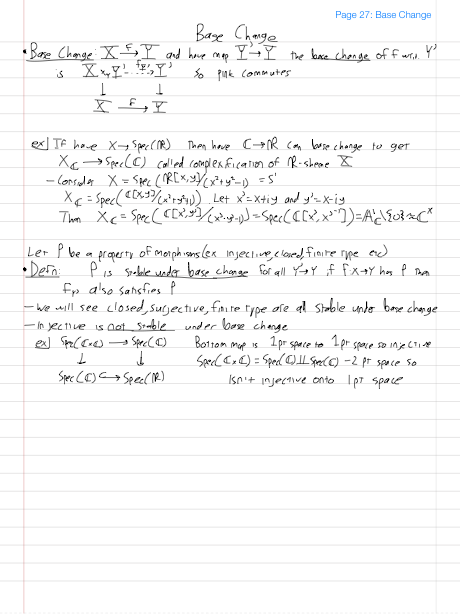 Page 27: Base Change
Base Change
• Base Change: X →f Y and have map Y' → Y the base change of f w.r.t. Y'
is X ×_Y Y' →f_Y' Y' so pink commutes
↓ ↓
X →f Y
ex] If have X → Spec(ℝ) Then have ℂ → ℝ can base change to get
X_ℂ → Spec(ℂ) called complexification of ℝ-scheme X
- Consider X = Spec(ℝ[x,y]/(x²+y²-1)) = S'
X_ℂ = Spec(ℂ[x,y]/(x²+y²-1)) Let x'=x+iy and y'=x-iy
Then X_ℂ = Spec(ℂ[x',y']/(x'·y'-1)) = Spec(ℂ[x',x'⁻¹]) = 𝔸'_ℂ\{0} ≈ ℂ^×
Let P be a property of morphisms (ex injective, closed, finite type etc)
• Defn: P is stable under base change for all Y'→Y if f: X→Y has P then
f_Y' also satisfies P
- We will see closed, surjective, finite type are all stable under base change
- Injective is not stable under base change
ex] Spec(ℂ×ℂ) → Spec(ℂ) Bottom map is 1 pt space to 1 pt space so injective
↓ ↓ Spec(ℂ×ℂ) = Spec(ℂ) ∐ Spec(ℂ) - 2 pt space so
Spec(ℂ) ↪ Spec(ℝ) Isn't injective onto 1 pt space